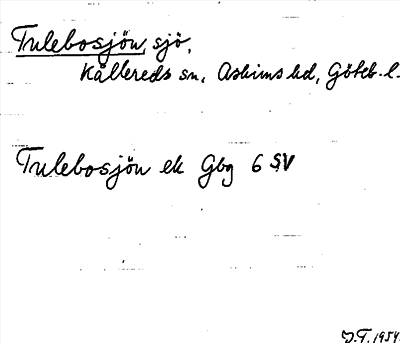 Tulebosjön, sjö,
Kållereds sn, Askims hd, Göteb. l.
Tulebosjön ek Gbg 6 SV
J.F. 1954.